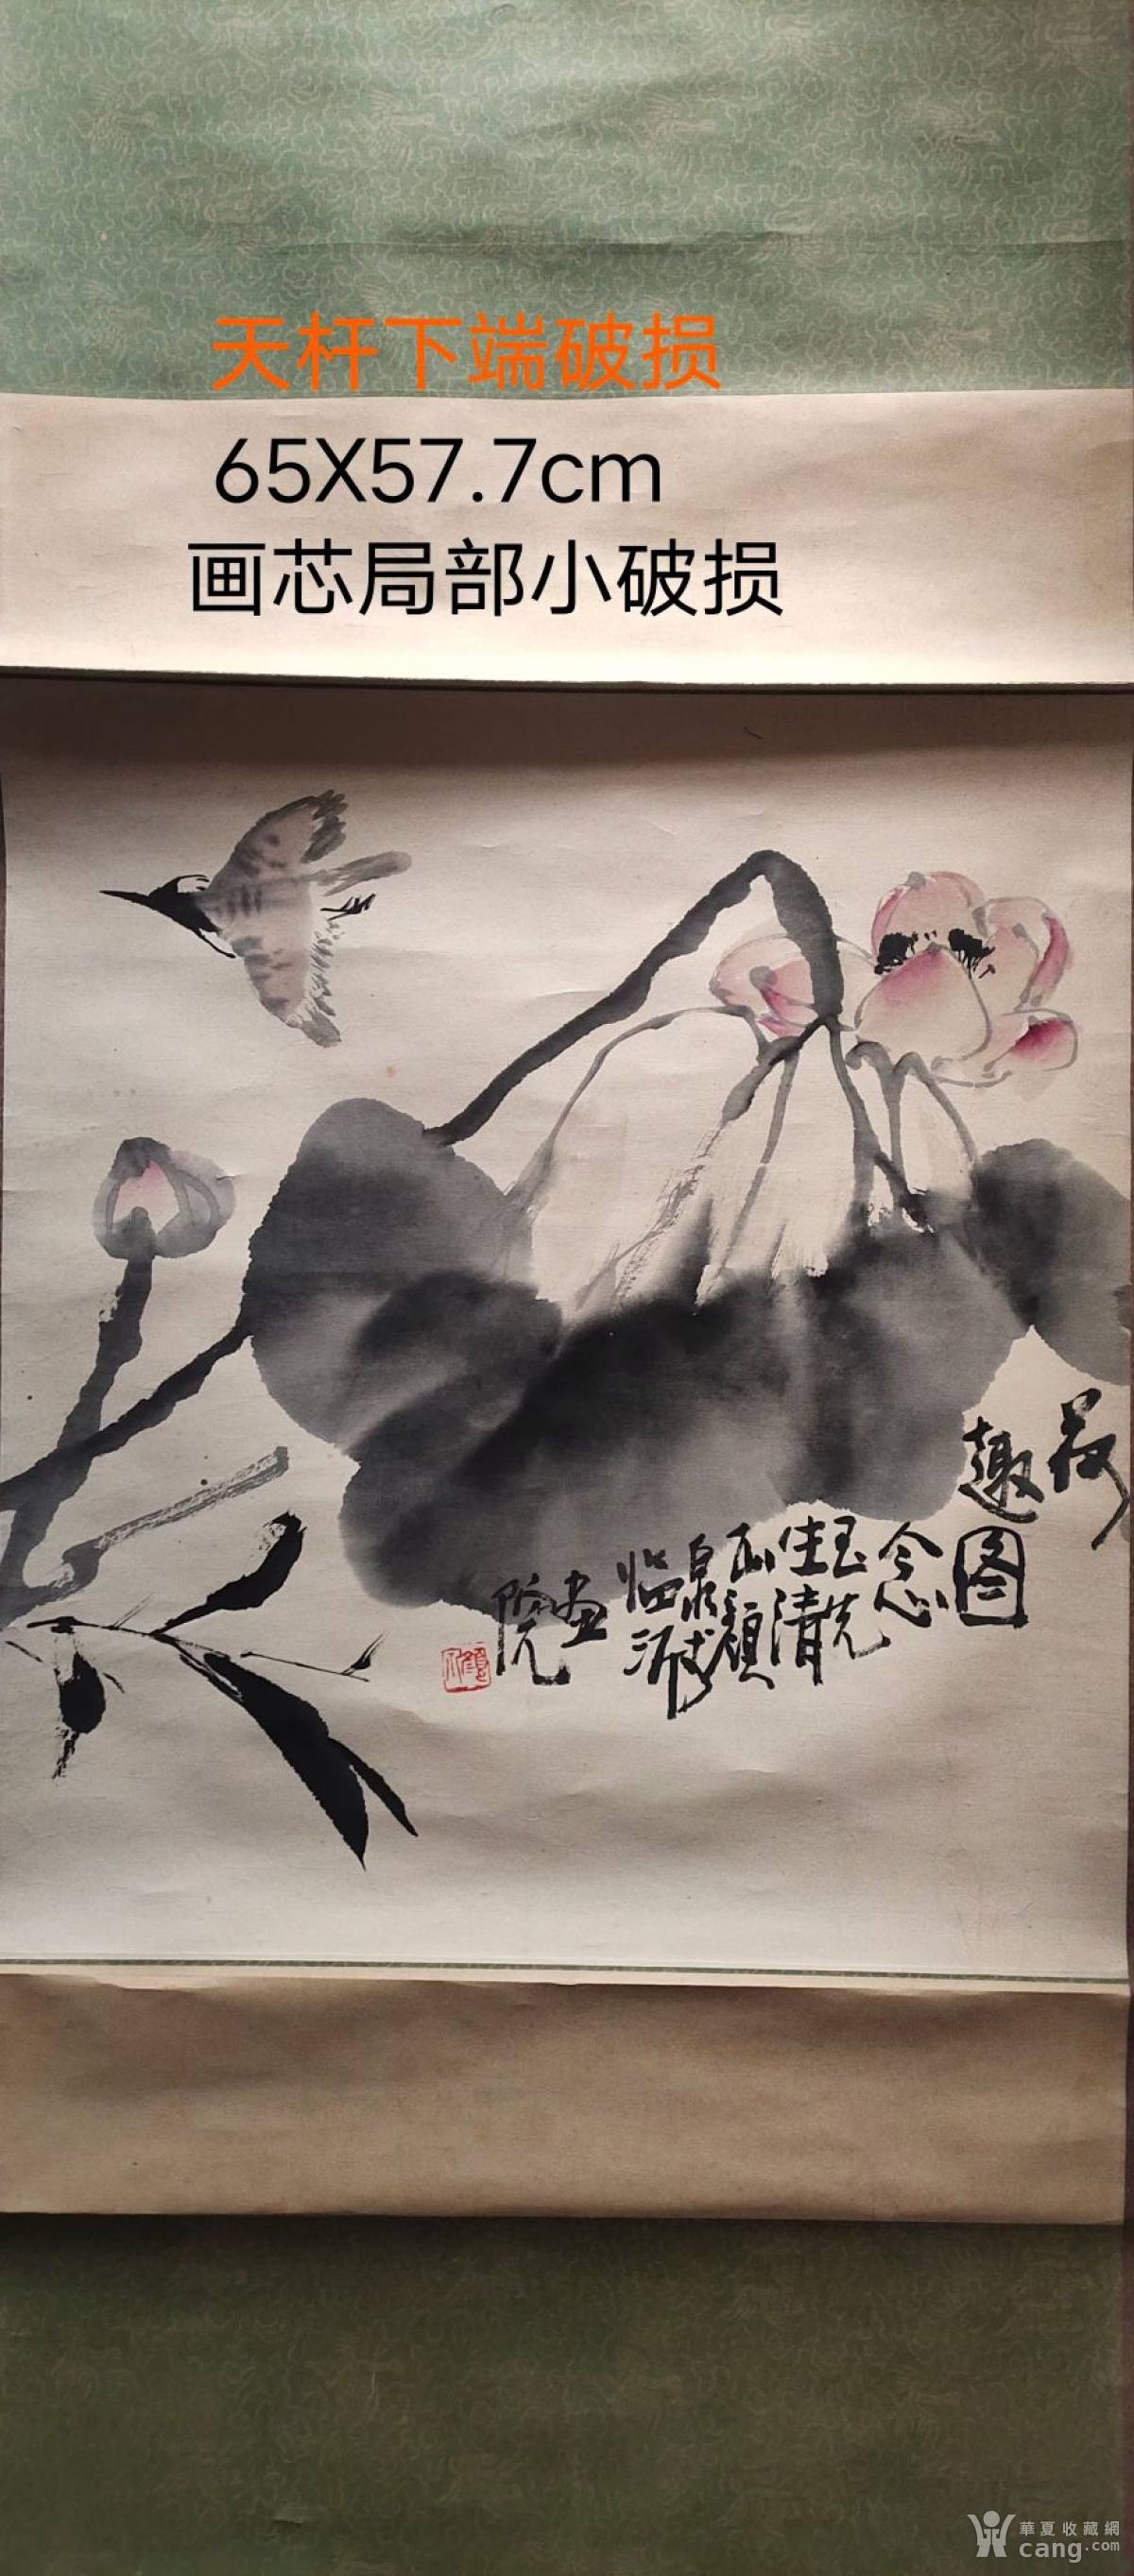 天杆下端破损
65X57.7cm
画芯局部小破损
荷
趣
图
念
玉
先
生
清
正
颜
泉
临
沂
画
院
華夏收藏網
cang.com